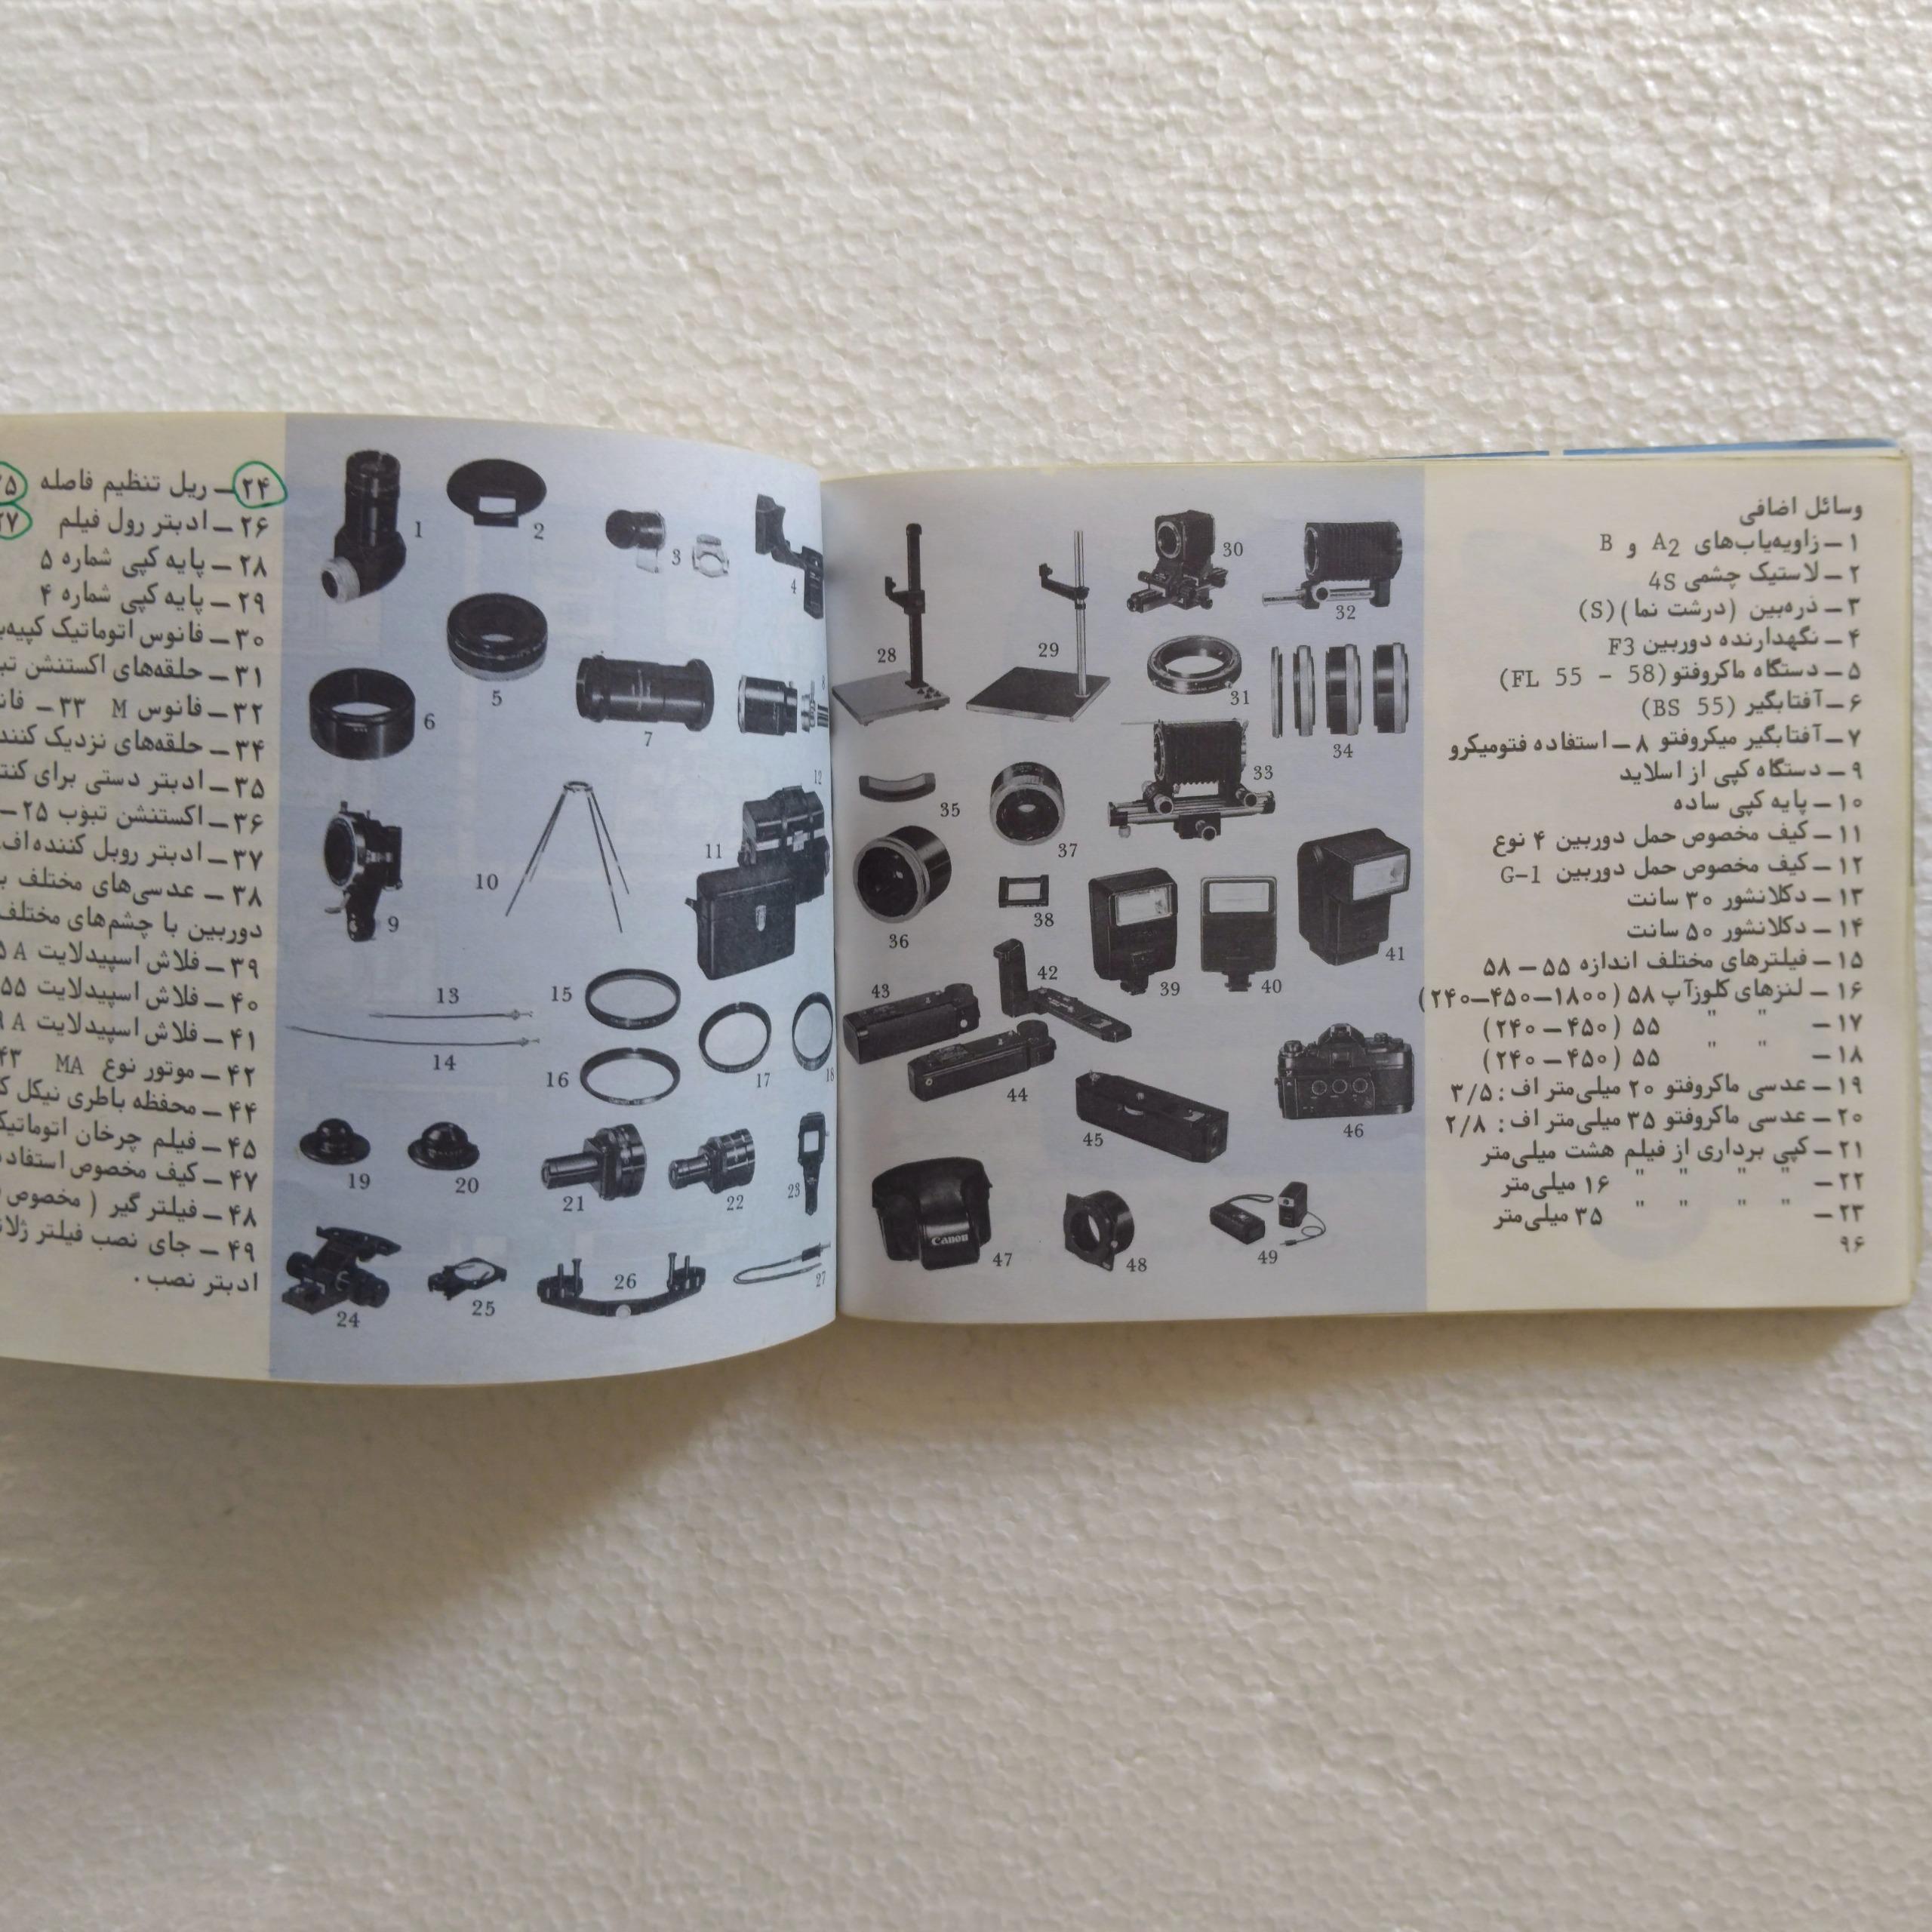 وسائل اضافی
۱ – زاویه‌یاب‌های A2 و B
۲ – لاستیک چشمی 4S
۳ – ذره‌بین (درشت نما) (S)
۴ – نگهدارنده دوربین F3
۵ – دستگاه ماکروفتو (FL 55 - 58)
۶ – آفتابگیر (BS 55)
۷ – آفتابگیر میکروفتو ۸ – استفاده فتومیکرو
۹ – دستگاه کپی از اسلاید
۱۰ – پایه کپی ساده
۱۱ – کیف مخصوص حمل دوربین ۴ نوع
۱۲ – کیف مخصوص حمل دوربین G-1
۱۳ – دکلانشور ۳۰ سانت
۱۴ – دکلانشور ۵۰ سانت
۱۵ – فیلترهای مختلف اندازه ۵۵ – ۵۸
۱۶ – لنزهای کلوزآپ ۵۸ (۱۸۰۰–۴۵۰–۲۴۰)
۱۷ – " " ۵۵ (۴۵۰ – ۲۴۰)
۱۸ – " " ۵۵ (۴۵۰ – ۲۴۰)
۱۹ – عدسی ماکروفتو ۲۰ میلی‌متر اف: ۳/۵
۲۰ – عدسی ماکروفتو ۳۵ میلی‌متر اف: ۲/۸
۲۱ – کپی برداری از فیلم هشت میلی‌متر
۲۲ – " " " " ۱۶ میلی‌متر
۲۳ – " " " " ۳۵ میلی‌متر
۹۶
28
29
30
32
31
34
33
35
37
36
38
39
40
41
42
43
44
45
46
47
Canon
48
49
1
2
3
4
5
6
7
8
9
10
11
12
13
14
15
16
17
18
19
20
21
22
23
24
25
26
27
۲۴ – ریل تنظیم فاصله
۲۶ – ادبتر رول فیلم
۲۸ – پایه کپی شماره ۵
۲۹ – پایه کپی شماره ۴
۳۰ – فانوس اتوماتیک
۳۱ – حلقه‌های اکستنشن
۳۲ – فانوس M ۳۳ –
۳۴ – حلقه‌های نزدیک
۳۵ – ادبتر دستی برای
۳۶ – اکستنشن تیوب ۲۵ –
۳۷ – ادبتر روبل کننده اف
۳۸ – عدسی‌های مختلف
دوربین با چشم‌های مختلف
۳۹ – فلاش اسپیدلایت
۴۰ – فلاش اسپیدلایت
۴۱ – فلاش اسپیدلایت
۴۲ – موتور نوع MA
۴۴ – محفظه باطری نیکل
۴۵ – فیلم چرخان
۴۷ – کیف مخصوص
۴۸ – فیلتر گیر ( مخصوص
۴۹ – جای نصب فیلتر
ادبتر نصب .